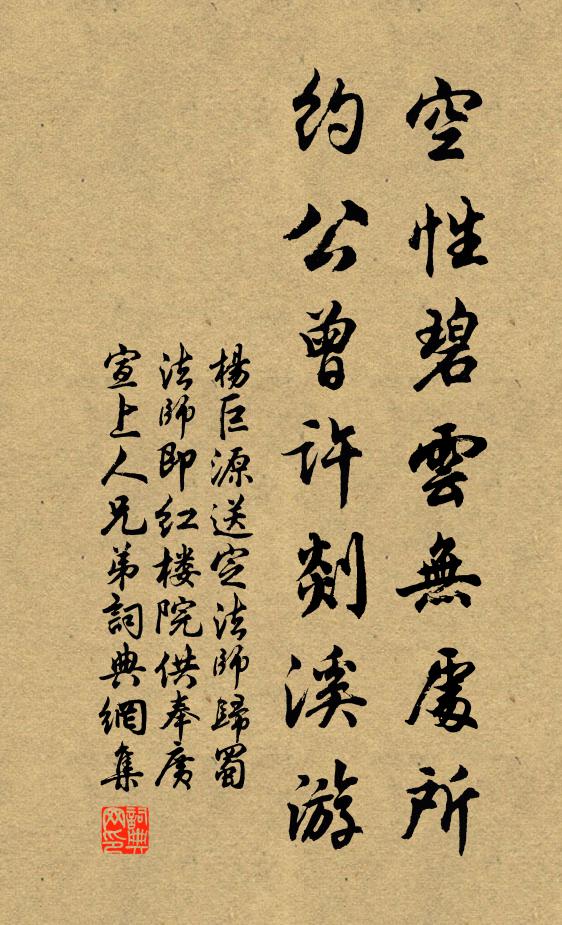 空性碧雲無處所
約公曾許剡溪游
楊巨源送定法師歸蜀
法師即红楼院供奉廣
宣上人兄弟詞典網集
詞典网印